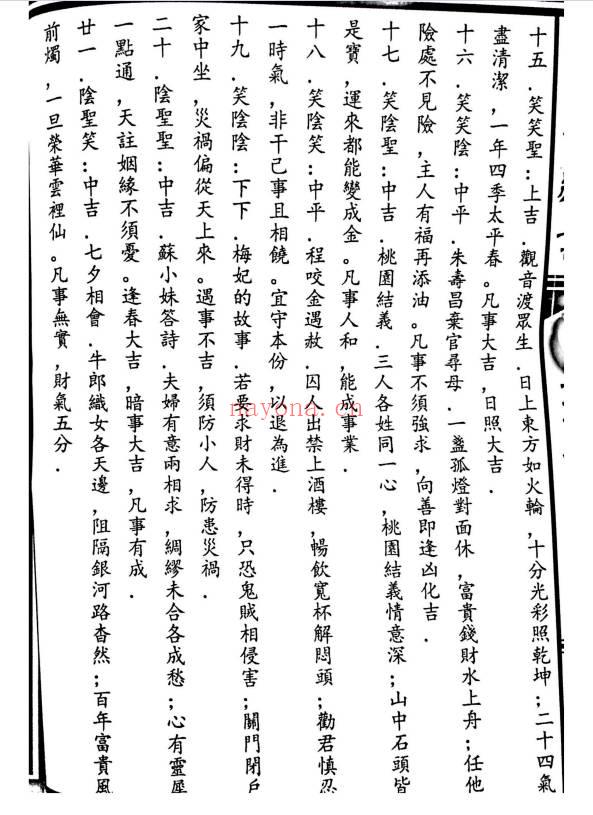 十五．笑笑聖：上吉．觀音渡眾生．日上東方如火輪，十分光彩照乾坤；二十四氣
盡清潔，一年四季太平春。凡事大吉，日照大吉．
十六．笑笑陰：中平．朱壽昌棄官尋母．一盞孤燈對面休，富貴錢財水上舟；任他
險處不見險，主人有福再添油。凡事不須強求，向善即逢凶化吉．
十七．笑陰聖：中吉．桃園結義．三人各姓同一心，桃園結義情意深；山中石頭皆
是寶，運來都能變成金。凡事人和，能成事業．
十八．笑陰笑：中平．程咬金遇赦．囚人出禁上酒樓，暢飲寬杯解悶頭；勸君慎忍
一時氣，非干己事且相饒。宜守本份，以退為進．
十九．笑陰陰：下下．梅妃的故事．若要求財未得時，只恐鬼賊相侵害；關門閉戶
家中坐，災禍偏從天上來。遇事不吉，須防小人，防患災禍．
二十．陰聖聖：中吉．蘇小妹答詩．夫婦有意兩相求，綢繆未合各成愁；心有靈犀
一點通，天註姻緣不須憂。逢春大吉，暗事大吉，凡事有成．
廿一．陰聖笑：中吉．七夕相會．牛郎織女各天邊，阻隔銀河路杳然；百年富貴風
前燭，一旦榮華雲裡仙。凡事無實，財氣五分．
nayona.cn